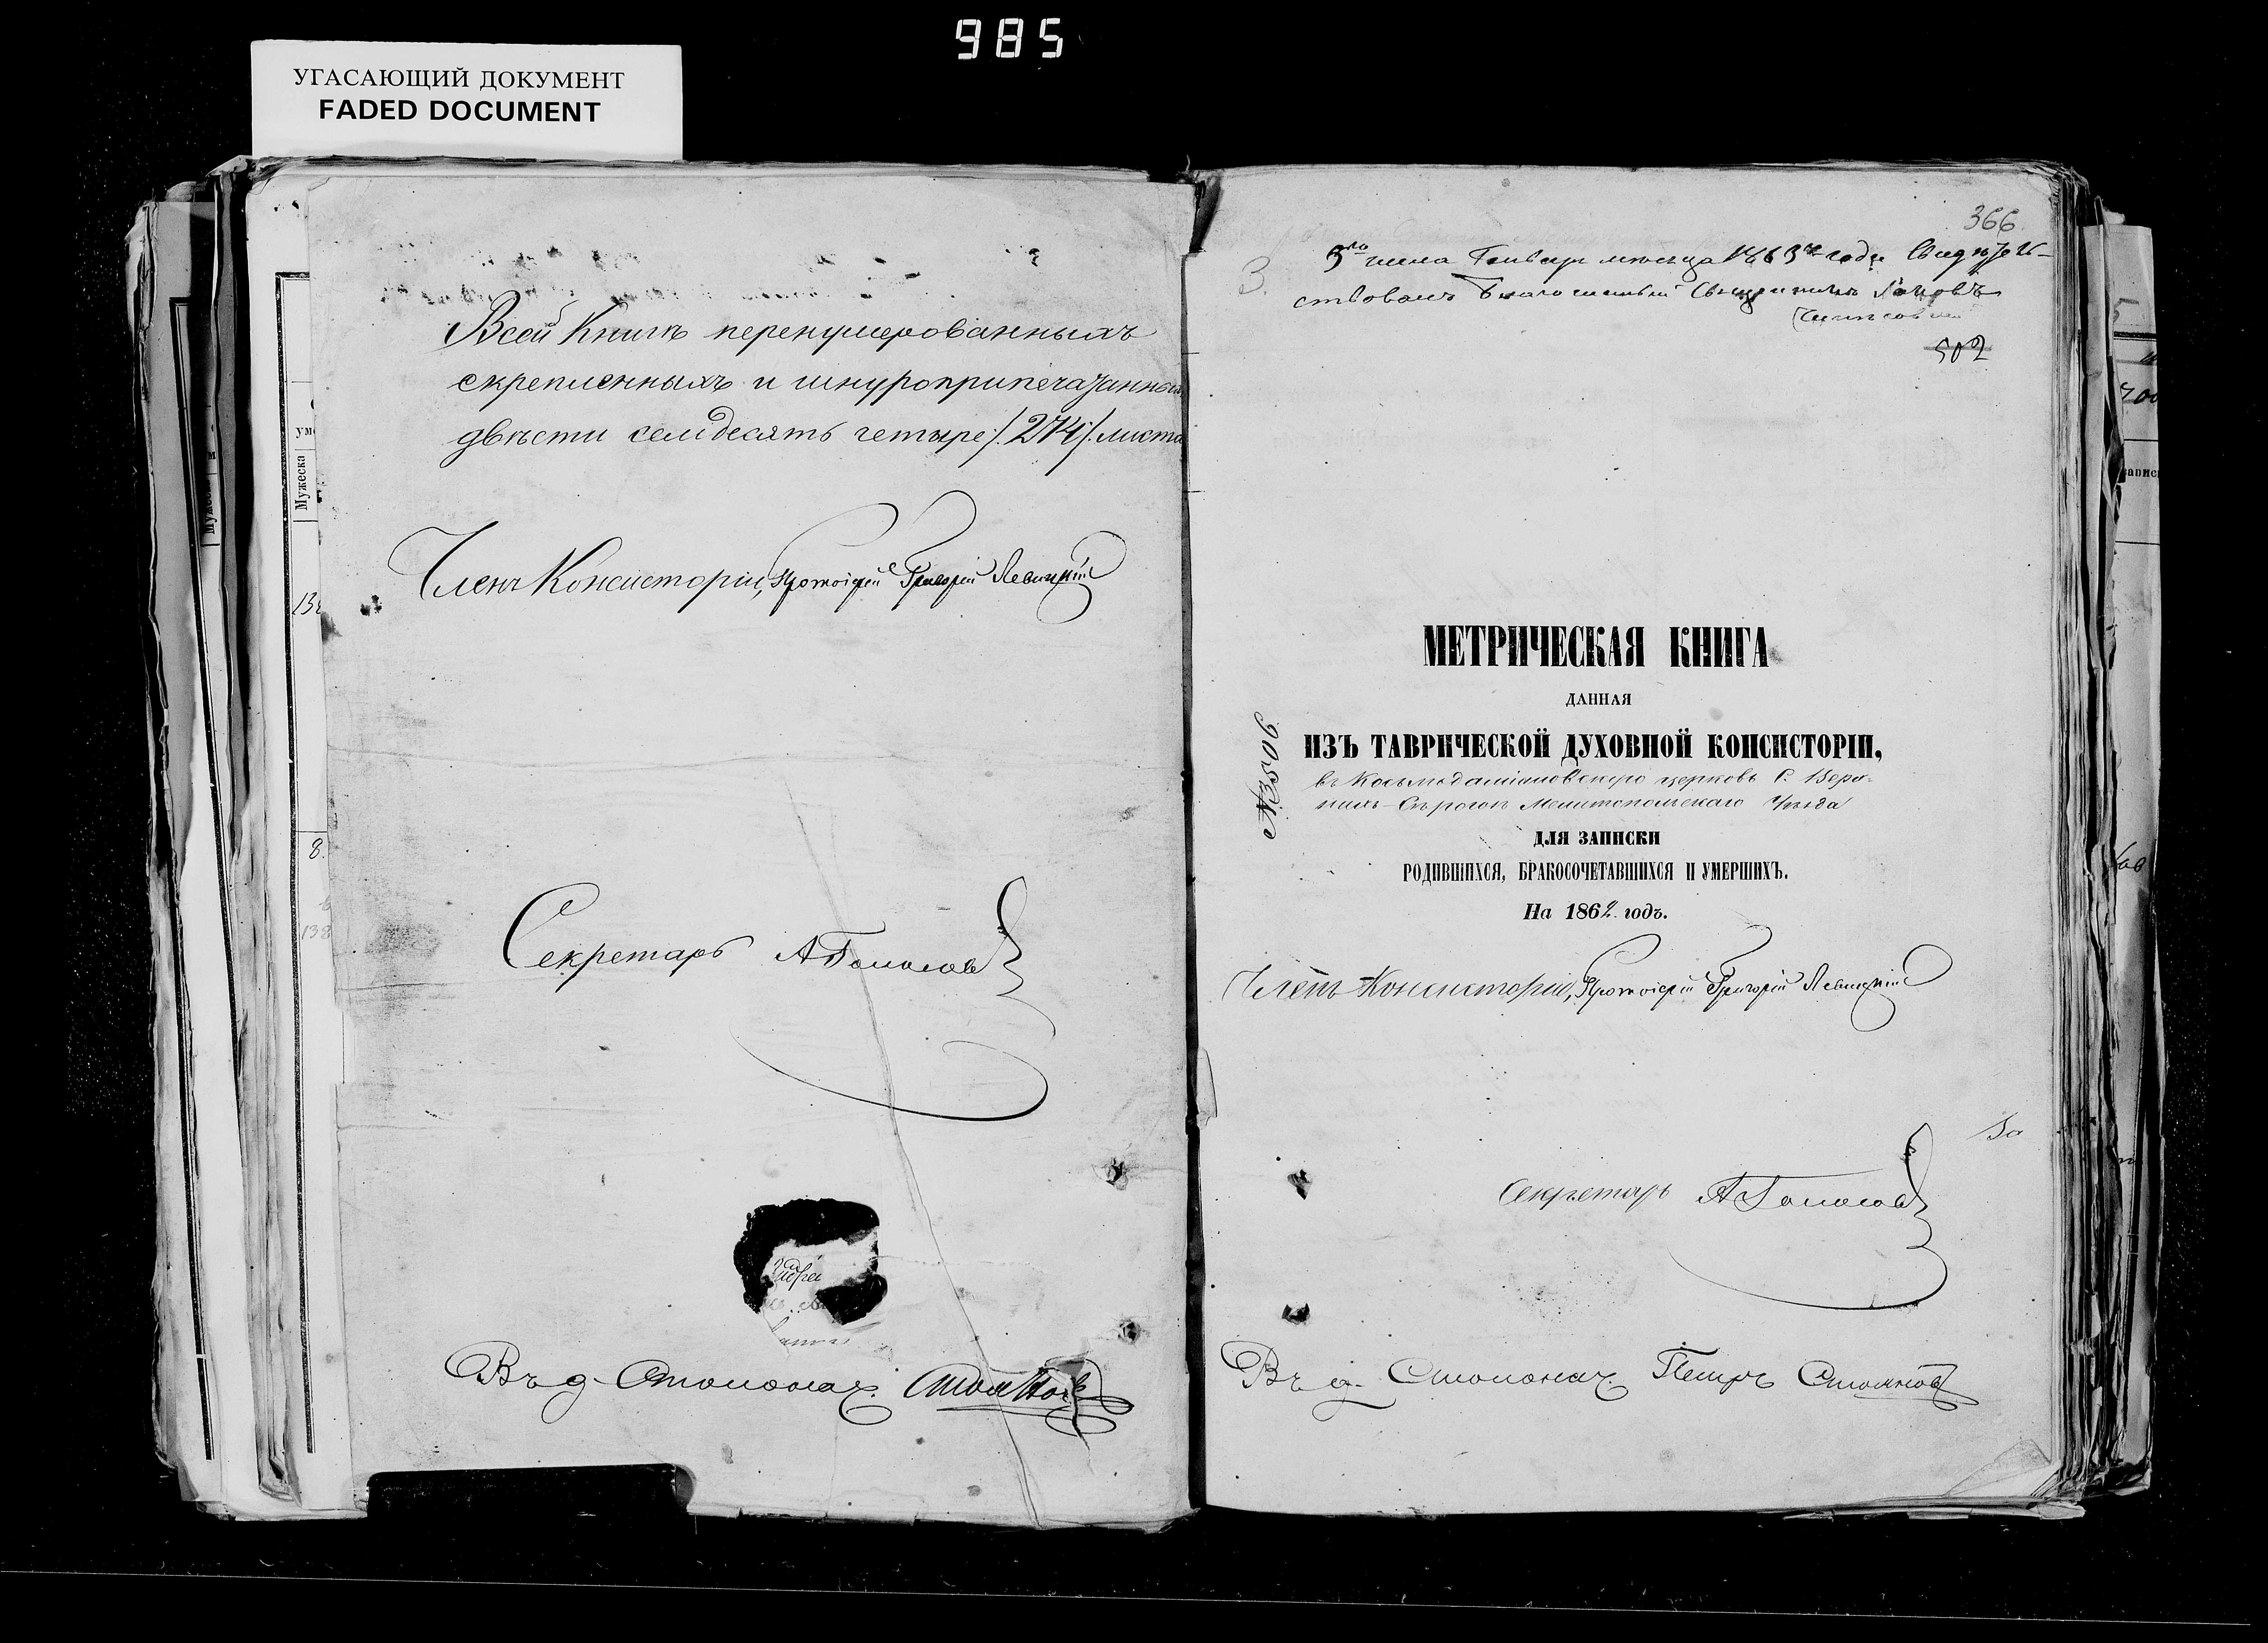 985
УГАСАЮЩИЙ ДОКУМЕНТ
FADED DOCUMENT
Всей Книгѣ перенумерованныхъ
скрепленныхъ и шнуроприпечатанны
двѣсти семдесятъ четыре /.274/. листа
Членъ Консисторіи, Протоіерей Григорій Левицкій
Секретарь
Мужеска
8.
138
366
3.
3го числа месяца 1863го года Свидѣтель-
ствовалъ Благочинный Священникъ
502
МЕТРИЧЕСКАЯ КНИГА
ДАННАЯ
ИЗЪ ТАВРИЧЕСКОЙ ДУХОВНОЙ КОНСИСТОРІИ,
въ Косьмодаміановскую церковь С. Верх-
нихъ-Сѣрогозъ Мелитопольскаго Уѣзда
ДЛЯ ЗАПИСКИ
РОДИВШИХСЯ, БРАКОСОЧЕТАВШИХСЯ И УМЕРШИХЪ.
На 1862 годъ.
Членъ Консисторіи, Протоіерей Григорій Левицкій
Секретарь
Петръ